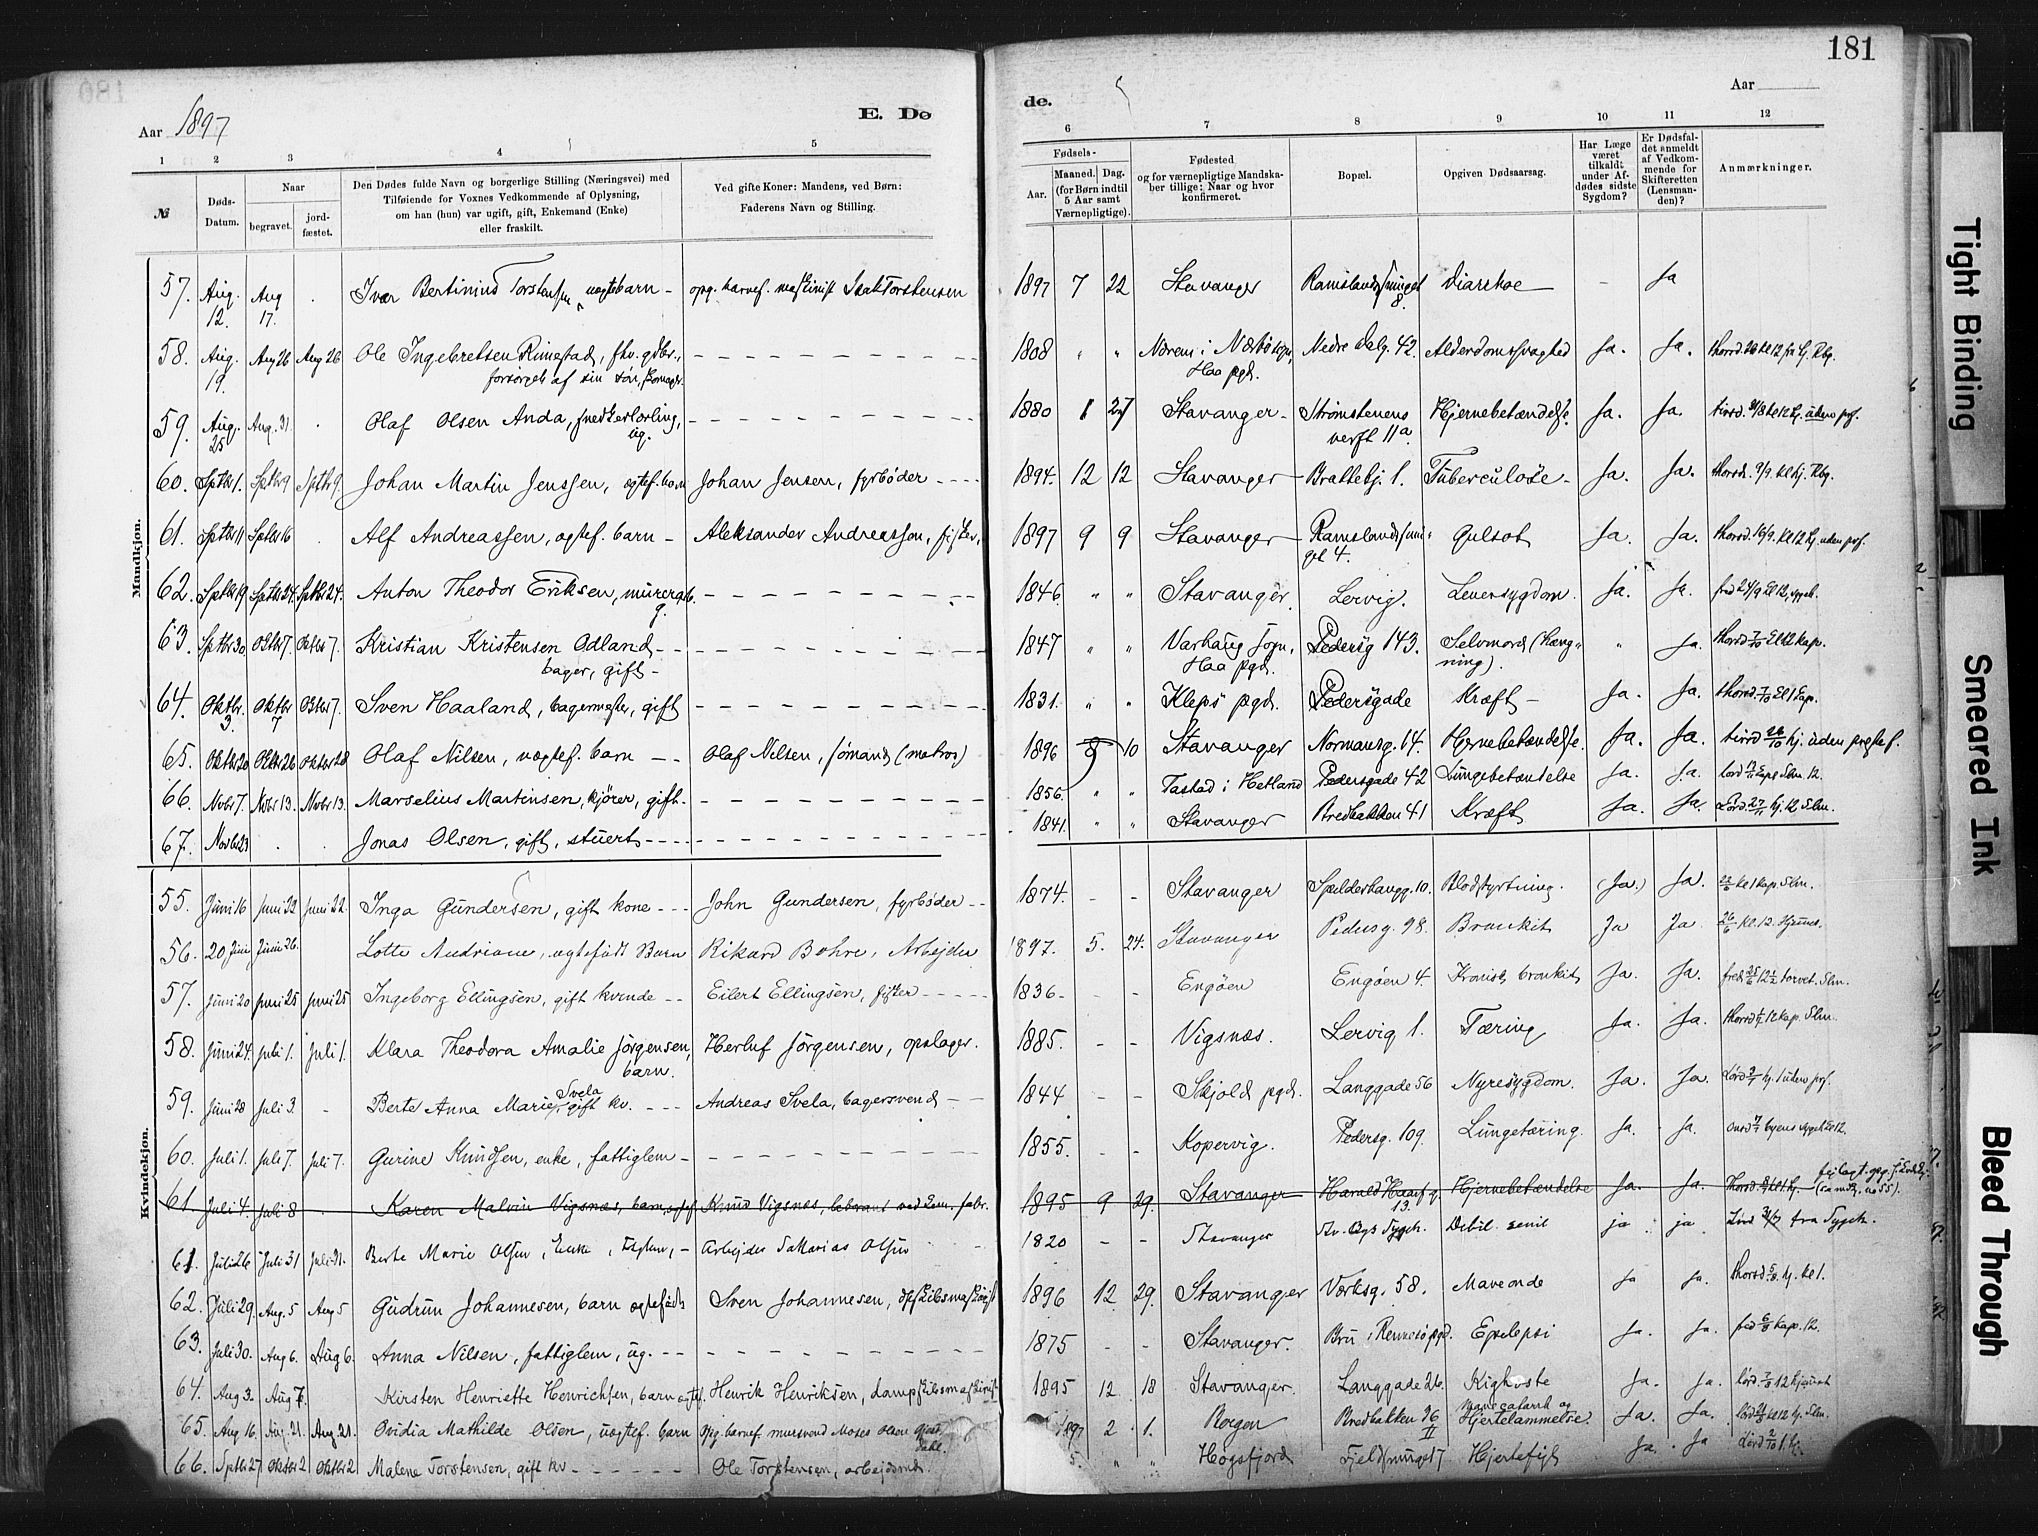 181
Aar 1897
E. Dø
de.
Aar
1 2 3 4 5
6 7 8 9 10 11 12
№
Døds-Datum.
Naar
begravet.
jord-fæstet.
Den Dødes fulde Navn og borgerlige Stilling (Næringsvei) med
Tilføiende for Voxnes Vedkommende af Oplysning,
om han (hun) var ugift, gift, Enkemand (Enke)
eller fraskilt.
Ved gifte Koner: Mandens, ved Børn:
Faderens Navn og Stilling.
Fødsels-
Aar.
Maaned. Dag.
(for Børn indtil
5 Aar samt
Værnepligtige).
Fødested
og for værnepligtige Mandska-
ber tillige: Naar og hvor
konfirmeret.
Bopæl.
Opgiven Dødsaarsag.
Har Læge
været
tilkaldt
under Af-
dødes sidste
Sygdom?
Er Dødsfal-
det anmeldt
af Vedkom-
mende for
Skifteretten
(Lensman-
den)?
Anmærkninger.
Mandkjøn.
57. Aug. 12. Aug 17. Ivar Bertinius Torstensen, uægte barn - opg. barnef. maskinist Isak Torstensen 1897 7 22 Stavanger Ramslandssmuget 8. Diarrhoe - Ja
58. Aug. 19. Aug 26 Aug 26 Ole Ingebretsen Rimestad, fhv. gdbr., forsørget af sin søn, 1808 " " Nærem i Nærbø sogn, Haa pgd. Nedre Dalg. 42. Alderdomssvaghed Ja. Ja.
59. Aug. 25 Aug. 31 Olaf Olsen Anda, snedkerlærling, ug. 1880 1 27 Stavanger - Strømstenens verft 11a Hjernebetændelse. Ja. Ja. tirsd. 31/8 kl 12 hj. uden prf.
60. Sptbr 1. Sptbr 9 Sptbr 9. Johan Martin Jenssen, ægtef. barn Johan Jensen, fyrbøder 1894. 12 12 Stavanger Brattebj. 1. Tuberculose - Ja. Ja. thorsd. 9/9. kl 1 hj. Kbg.
61. Sptbr 11 Sptbr 16 Alf Andreassen, ægtef. barn - Aleksander Andreassen, fisker, 1897 9 9 Stavanger Ramslandssmuget 4. Gulsot Ja. Ja. thorsd. 16/9. kl 12 hj. uden prf.
62. Sptbr 19 Sptbr 24. Sptbr 24. Anton Theodor Eriksen, murerarb. g. 1846. " " Stavanger. Lervig. Leversygdom. Ja. Ja. fred 24/9 kl 12, sygeh.
63. Sptbr 30 Oktbr 7. Oktbr 7. Kristian Kristensen Odland bager, gift - 1847 " " Varhaug sogn, Haa pgd. Pedersg 143. Selvmord (hængning). " Ja. thorsd 7/10 kl 12 kap.
64. Oktbr. 3. Oktbr 7 Oktbr 7. Sven Haaland, bagermester, gift 1831. " " Kleps pgd. Pedersgade Kræft - Ja. Ja. thorsd. 7/10 kl 1 kap.
65. Oktbr 20 Oktbr 26 Oktbr 28 Olaf Nilsen, uægtef. barn - Olaf Nilsen, sømand (matros) 1896 8 10 Stavanger Normansg. 14. Hjernebetændelse. Ja. Ja. tirsd 26/10 hj. uden prestef.
66. Novbr 7. Novbr 13. Novbr 13. Marselius Martinsen, kjører, gift. 1856. " " Tastad i Hetland Pedersgade 42 Lungebetændelse Ja. Ja.
67. Novbr 23 Jonas Olsen, gift, stuert 1841. " " Stavanger Bredbakken 41 Kræft Ja. Ja. Lørd. 27/11 hj. 12 Slm.
Kvindekjøn.
55. Juni 16 Juni 22 Juni 22. Inga Gundersen, gift kone John Gundersen, fyrbøder 1874. - - Stavanger Spilderhaugg. 10. Blodstyrtning. (Ja.) Ja. 22/6 kl 1 kap. Slm.
56. 20 Juni Juni 26. Lotte Andriane, ægtefødt Barn Rikard Bohre, Arbejder 1897. 5. 24. Stavanger Pedersg. 98. Bronkit Ja Ja 26/6 kl. 12. Hjemmet.
57. Juni 20 Juni 25 Juni 25 Ingeborg Ellingsen, gift kvinde Eilert Ellingsen, fisker 1836 - - Engøen Engøen 4. Kronisk bronkit Ja. Ja. fred 25/6 12 1/2 torvet. Slm.
58. Juni 24. Juli 1. Juli 1. Klara Theodora Amalie Jørgensen, barn. Herluf Jørgensen, opslager. 1885. - - Vigsnæs. Lervig 1. Tæring Ja. Ja. thorsd 1/7 12 kap. Slm.
59. Juni 28 Juli 3. - Berte Anna Marie Svela, gift kv. Andreas Svela, bagersvend 1844 - - Skjold pgd. Langgade 56 Nyresygdom. Ja. Ja. Lørd 3/7 hj. 1 uden prf.
60. Juli 1. Juli 7. Juli 7. Gurine Knudsen, enke, fattiglem 1855. - - Kopervig. Pedersg. 109. Lungetæring. Ja. Ja. onsd 7/7 byens sygeh kl 12.
61. Juli 4. Juli 8 Karen Malvin Vigsnæs, barn, ægtef. Knud Vigsnæs, 1895 9 29. Stavanger Harald Haarf. g. 13. Hjernebetændelse Ja. Ja. Thorsd. 8/7 kl 1 hj. (samt k. no 55).
61. Juli 26 Juli 31 Juli 31. Berte Marie Olsen, Enke, Fatglem, - Arbejder Sakarias Olsen 1820 - - Stavanger St. Bys Sygeh. Debil. senil ja ja Lørd 31/7 fra Sygeh.
62. Juli 29. Aug. 5 Aug 5 Gudrun Johannesen, barn ægtefødt Sven Johannesen, dpskibsmaskinist 1896 12 29. Stavanger Værksg. 58. Maveonde Ja Ja. thorsd. 5/8. hj. kl 1.
63. Juli 30. Aug 6. Aug 6. Anna Nilsen, fattiglem, ug. 1875 - - Stavanger. Bru i Rennesø pgd. Epilepsi Ja. Ja. fred 6/8 kap. 12.
64. Aug 3. Aug 7. Kirsten Henriette Henrichsen, barn ægtef. Henrik Henriksen, dampskibsmaskinist 1895 12. 18 Stavanger. Langgade 26. Kighoste Ja. Ja. lørd. 7/8 12 hjemmet
65. Aug 16. Aug. 21. Aug 21. Ovidia Mathilde Olsen, uægtef. barn Opg. barnef. mursvend Moses Olsen 1897 2 1. Bergen Bredbakken 36 II Mavekatarrh og Hjertelammelse. Ja. Ja. lørd 21/8 kl 12 hj. Slm.
66. Sptbr 27 Oktbr 2 Oktbr 2 Malene Torstensen, gift kv Ole Torstensen, arbejdsmd. " " Høgsfjord Fjeldsmuget 7 Hjertefejl Ja. Ja Lørd 2/10 1. hj.
Tight Binding
Smeared Ink
Bleed Through